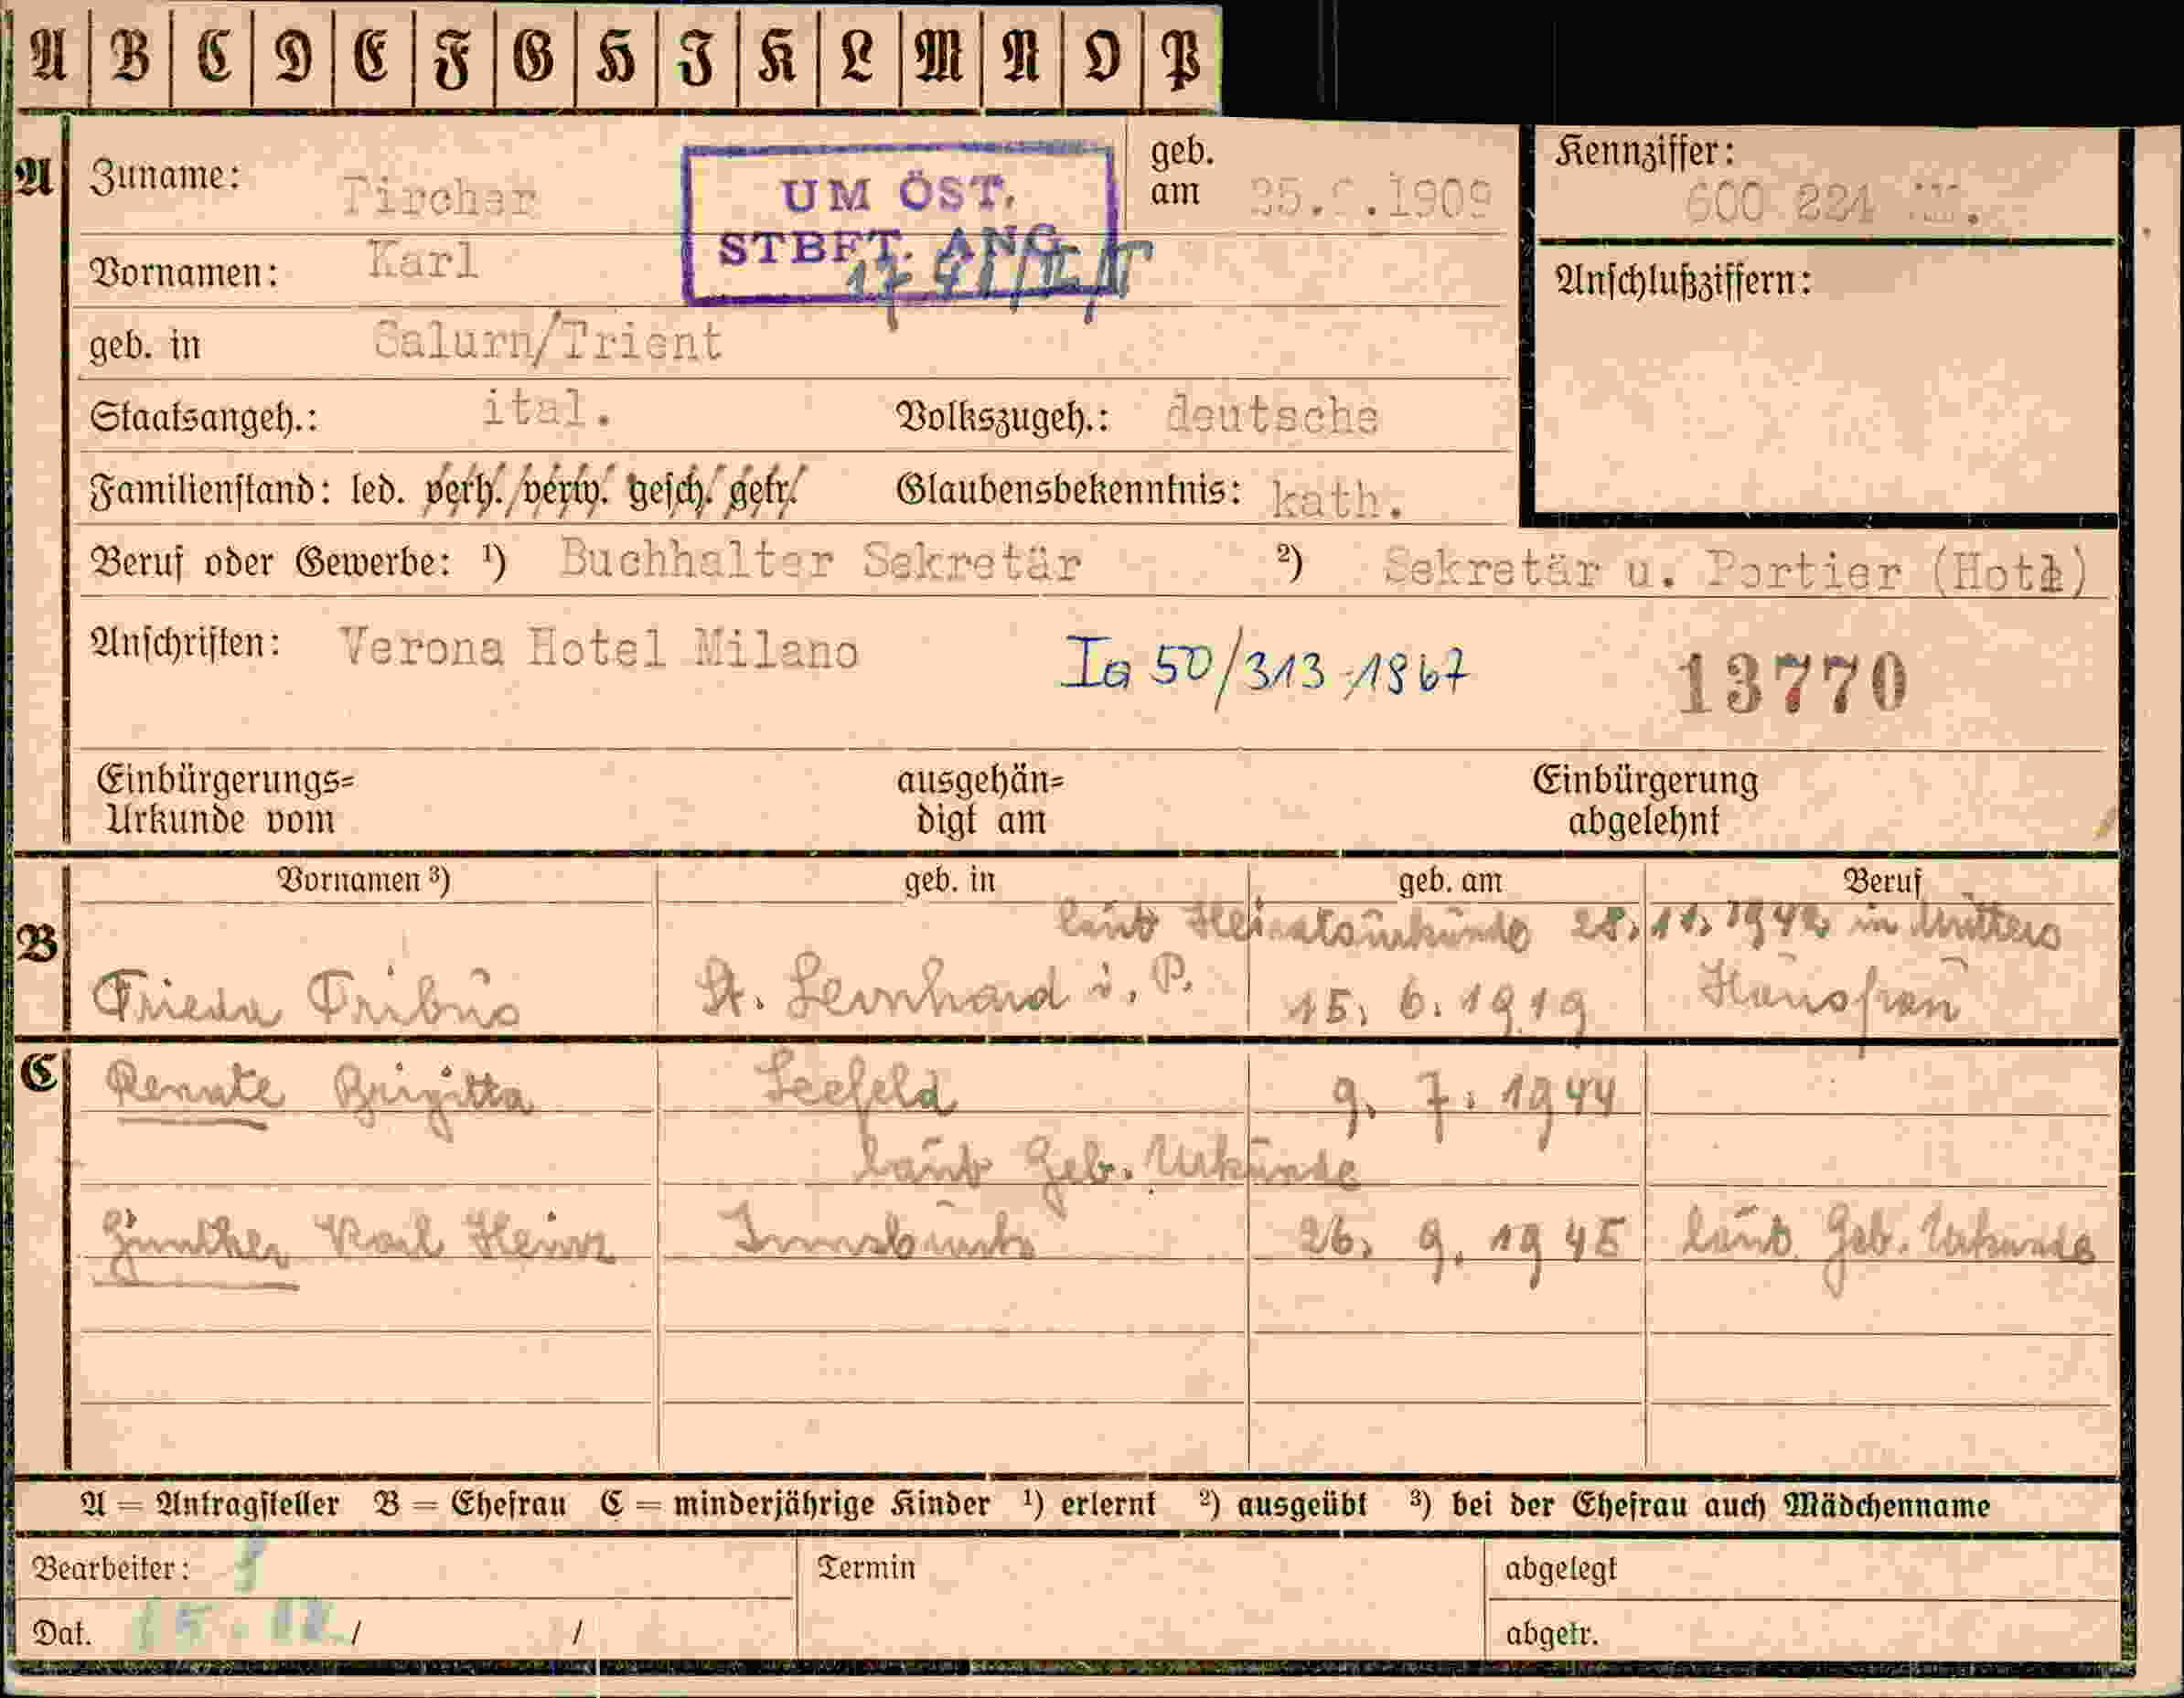 A B C D E F G H J K L M N O P
A Zuname: Pircher
UM ÖST.
STBFT. ANG.
geb. am 1909
Kennziffer: 600 224
Vornamen: Karl
Anschlußziffern:
geb. in Salurn/Trient
Staatsangeh.: ital. Volkszugeh.: deutsche
Familienstand: led. verh. verw. gesch. getr. Glaubensbekenntnis: kath.
Beruf oder Gewerbe: ¹) Buchhalter Sekretär ²) Sekretär u. Portier
Anschriften: Verona Hotel Milano Ia 50/313-1967 13770
Einbürgerungs=
Urkunde vom
ausgehän=
digt am
Einbürgerung
abgelehnt
Vornamen ³) geb. in geb. am Beruf
laut Heiratsurkunde 28.11.1942 in Mutters
B Frieda Tribus St. Leonhard i. P. 15. 6. 1919 Hausfrau
C Renate Brigitta Seefeld 9. 7. 1944
laut Geb. Urkunde
Günther Karl Heinz Innsbruck 26. 9. 1945 laut Geb. Urkunde
A = Antragsteller B = Ehefrau C = minderjährige Kinder ¹) erlernt ²) ausgeübt ³) bei der Ehefrau auch Mädchenname
Bearbeiter: Termin abgelegt
Dat. 15.12 / / abgetr.